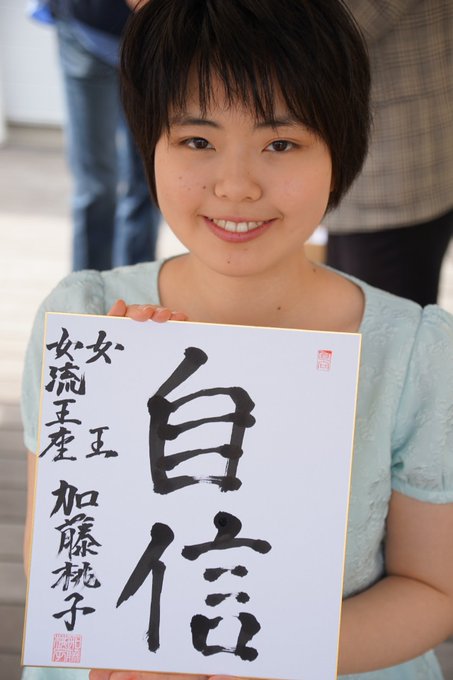 自信
女王
女流王座
加藤桃子